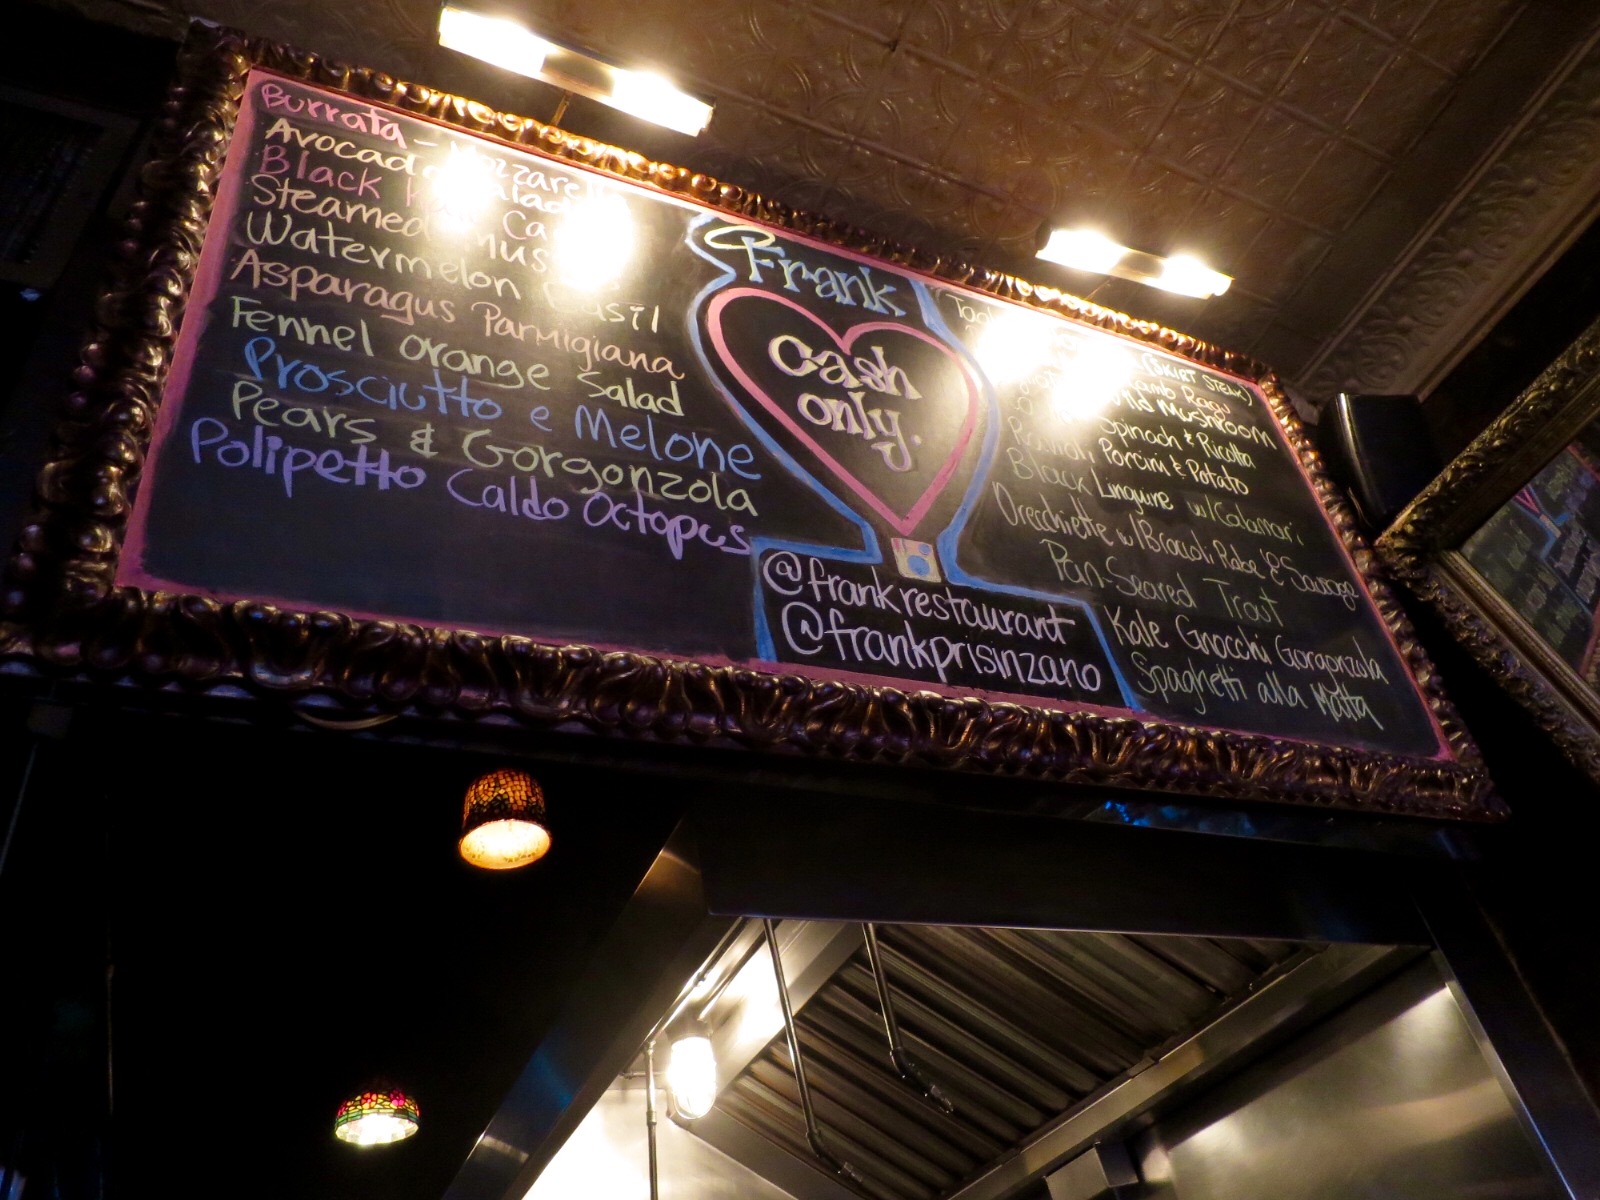 Burrata - Mozzarella
Avocado Salad
Black
Steamed
Watermelon Basil
Asparagus Parmigiana
Fennel orange Salad
Prosciutto e Melone
Pears & Gorgonzola
Polipetto Caldo Octopus
Frank
cash
only.
@frankrestaurant
@frankprisinzano
(SKIRT STEAK)
Lamb Ragu
Wild Mushroom
Spinach & Ricotta
Ravioli Porcini & Potato
Black Linguine w/Calamari
Orecchiette w/Brocoli Rabe & Sausage
Pan-Seared Trout
Kale Gnocchi Gorgonzola
Spaghetti alla